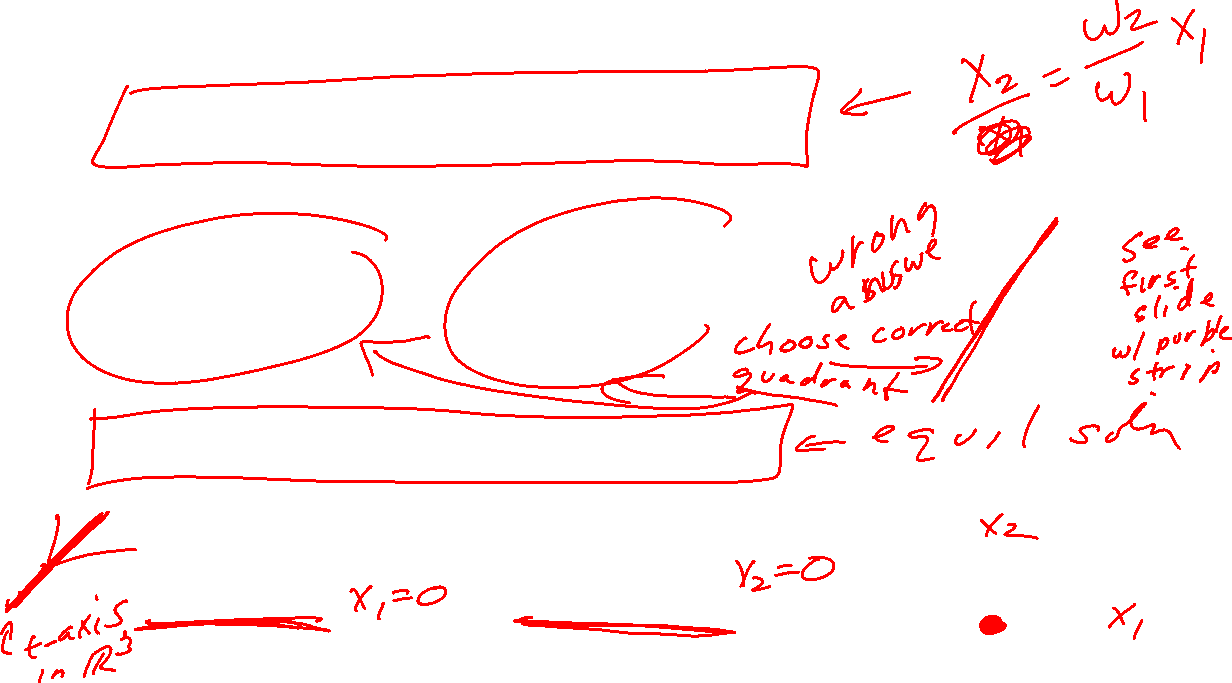 x₂ = w₂/w₁ x₁
wrong
choose correct
quadrant
see
first
slide
w/ purple
strip
equil soln
x₂
x₁=0
x₂=0
x₁
t-axis
in R³